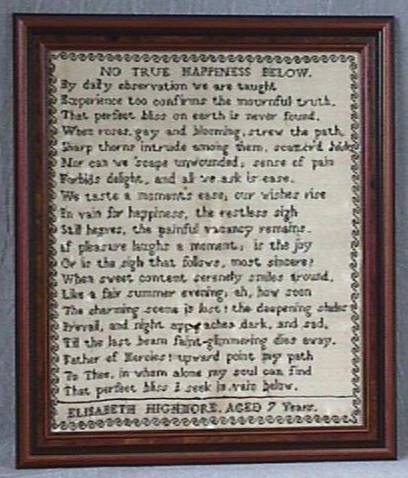 NO TRUE HAPPENESS BELOW.
By daily observation we are taught
Experience too confirms the mournful truth,
That perfect bliss on earth is never found.
When roses, gay and blooming, strew the path,
Sharp thorns intrude among them, scatter'd
Nor can we 'scape unwounded; sense of pain
Forbids delight, and all we ask is ease.
We taste a moment's ease; our wishes rise
In vain for happiness, the restless sigh
Still heaves, the painful vacancy remains.
If pleasure laughs a moment; is the joy
Or is the sigh that follows, most sincere?
When sweet content serenely smiles around,
Like a fair summer evening; ah, how soon
The charming scene is lost! the deepening shades
Prevail, and night approaches dark, and sad,
Til the last beam faint-glimmering dies away.
Father of Mercies! upward point my path
To Thee, in whom alone my soul can find
That perfect bliss I seek in vain below.
ELISABETH HIGHMORE. AGED 7 Years.